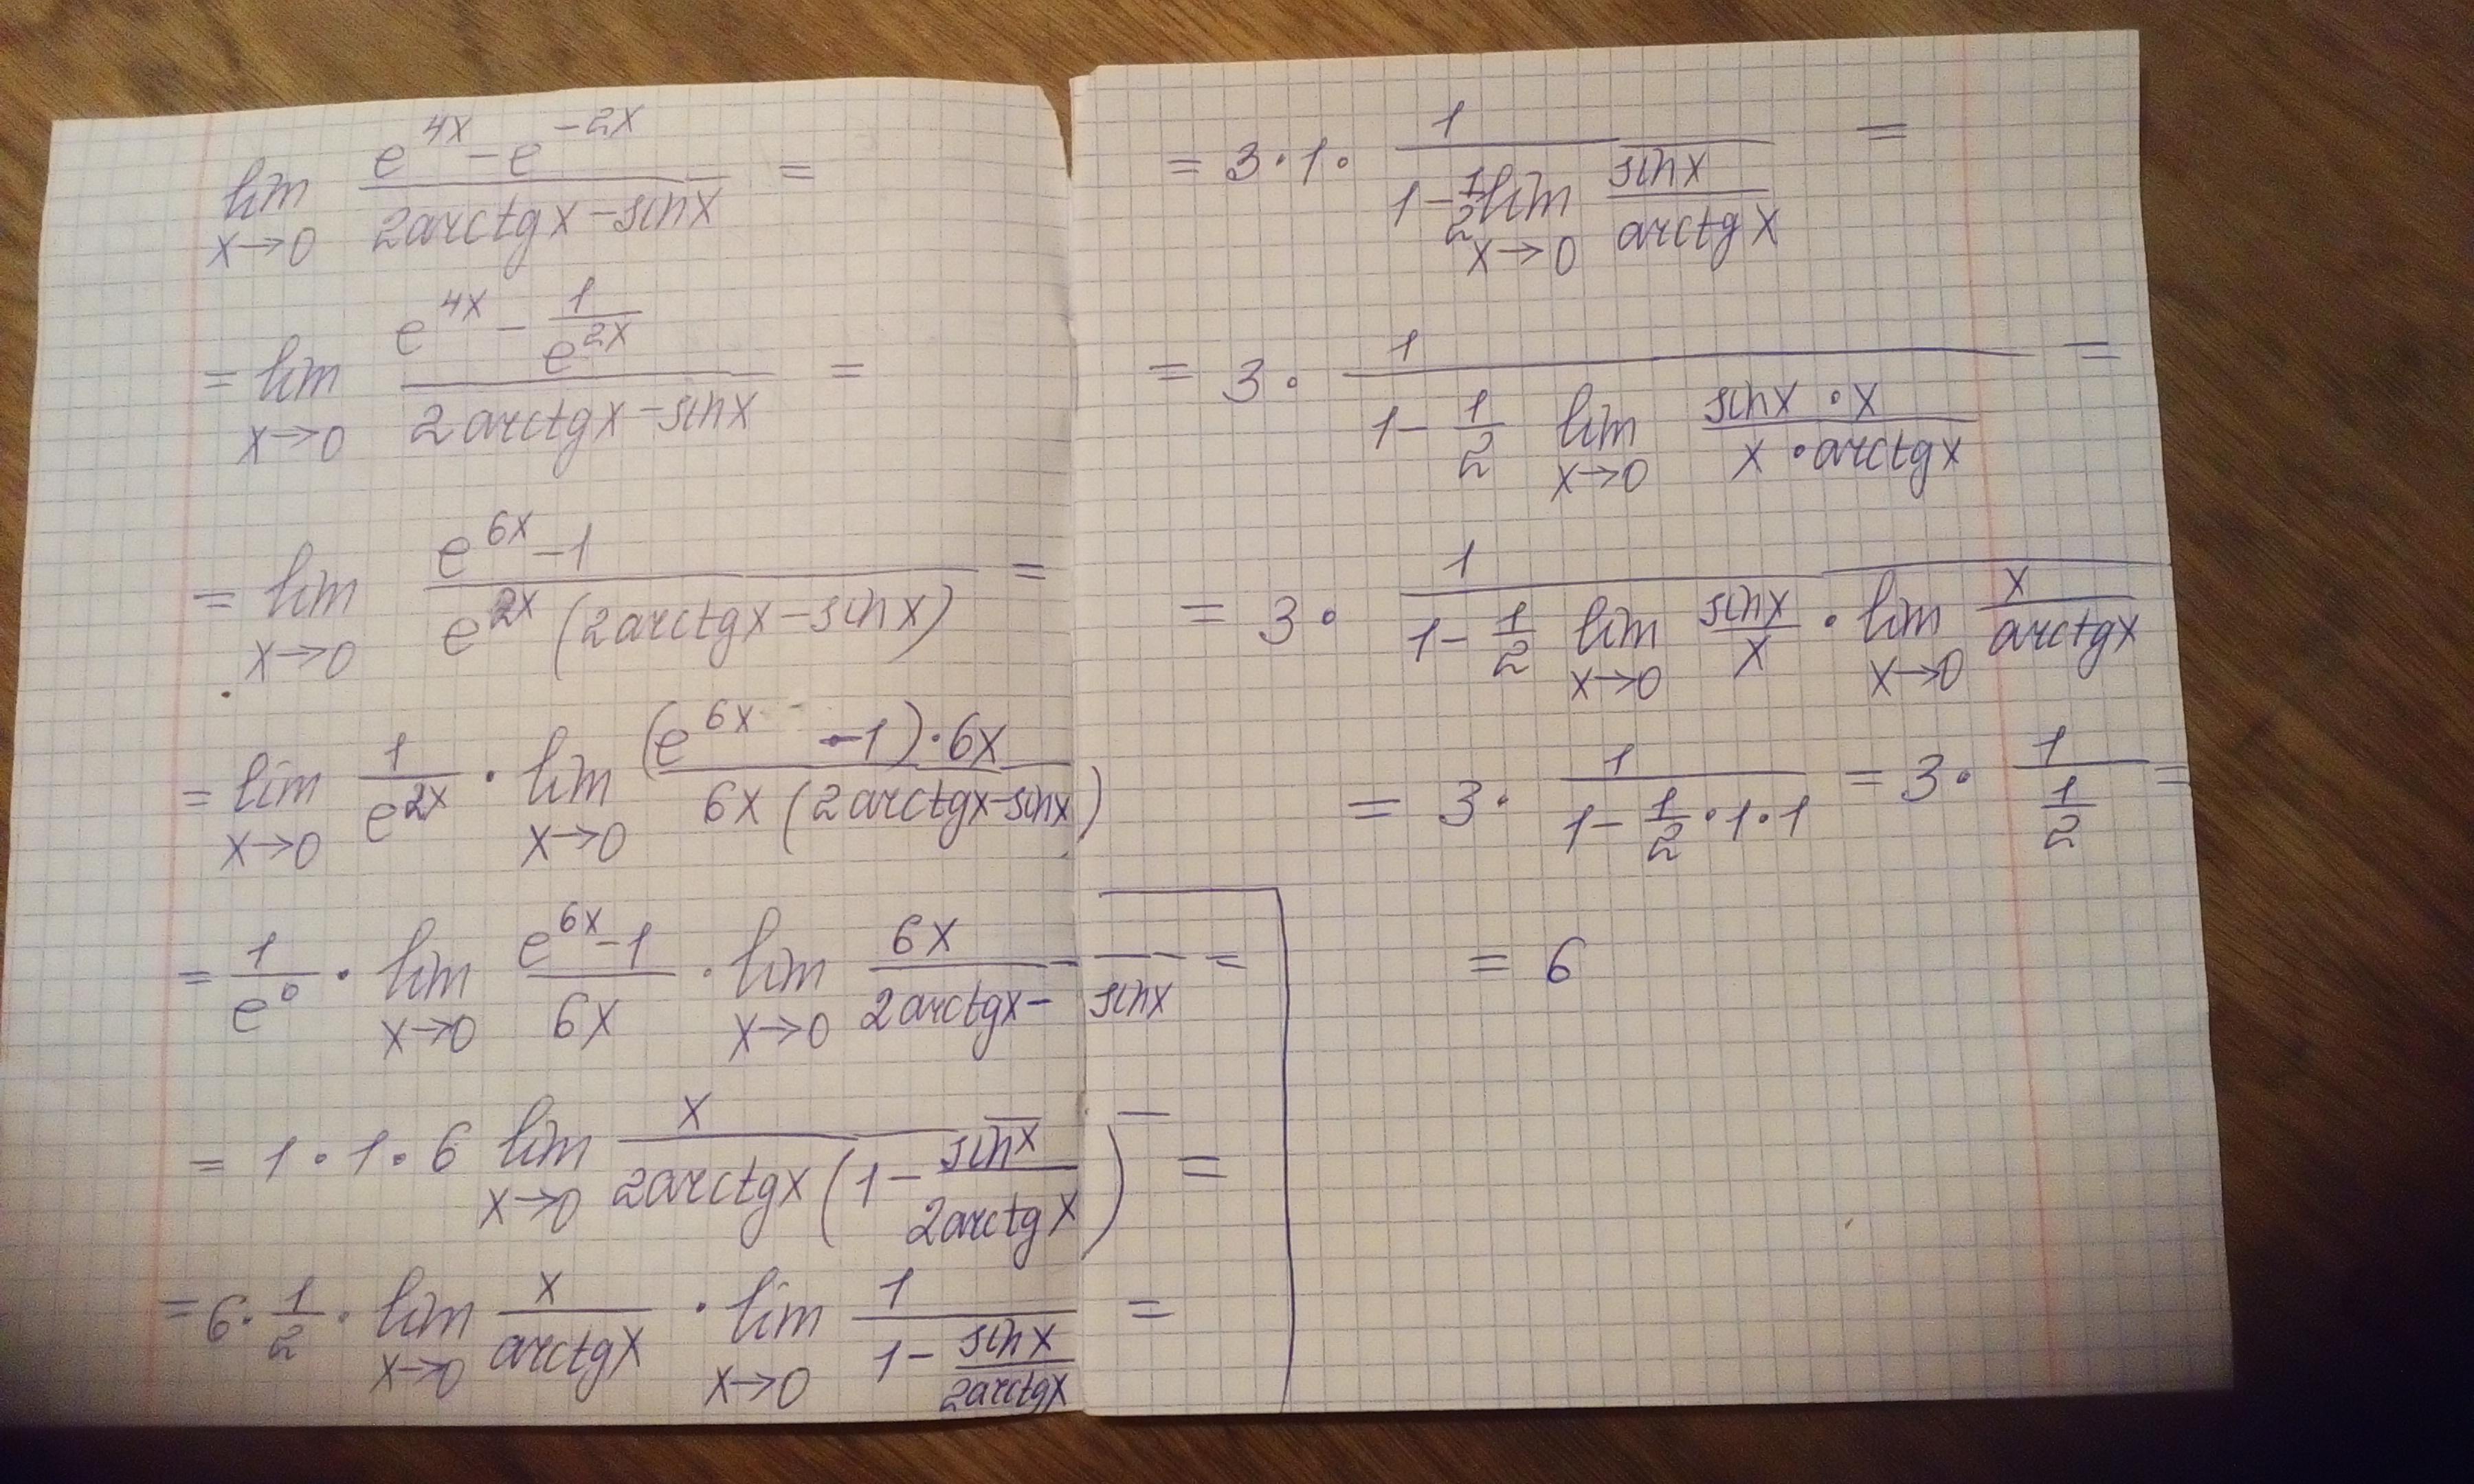 lim_{x→0} (e^{4x} − e^{−2x}) / (2arctgx − sinx) =
= lim_{x→0} (e^{4x} − 1/e^{2x}) / (2arctgx − sinx) =
= lim_{x→0} (e^{6x} − 1) / (e^{2x} (2arctgx − sinx)) =
= lim_{x→0} 1/e^{2x} · lim_{x→0} ((e^{6x} − 1) · 6x) / (6x (2arctgx − sinx))
= 1/e^0 · lim_{x→0} (e^{6x} − 1)/(6x) · lim_{x→0} 6x/(2arctgx − sinx) =
= 1 · 1 · 6 lim_{x→0} x / (2arctgx (1 − sinx/(2arctgx))) =
= 6 · 1/2 · lim_{x→0} x/arctgx · lim_{x→0} 1/(1 − sinx/(2arctgx)) =
= 3 · 1 · 1/(1 − 1/2 lim_{x→0} sinx/arctgx) =
= 3 · 1/(1 − 1/2 lim_{x→0} (sinx · x)/(x · arctgx)) =
= 3 · 1/(1 − 1/2 lim_{x→0} sinx/x · lim_{x→0} x/arctgx)
= 3 · 1/(1 − 1/2 · 1 · 1) = 3 · 1/(1/2) =
= 6